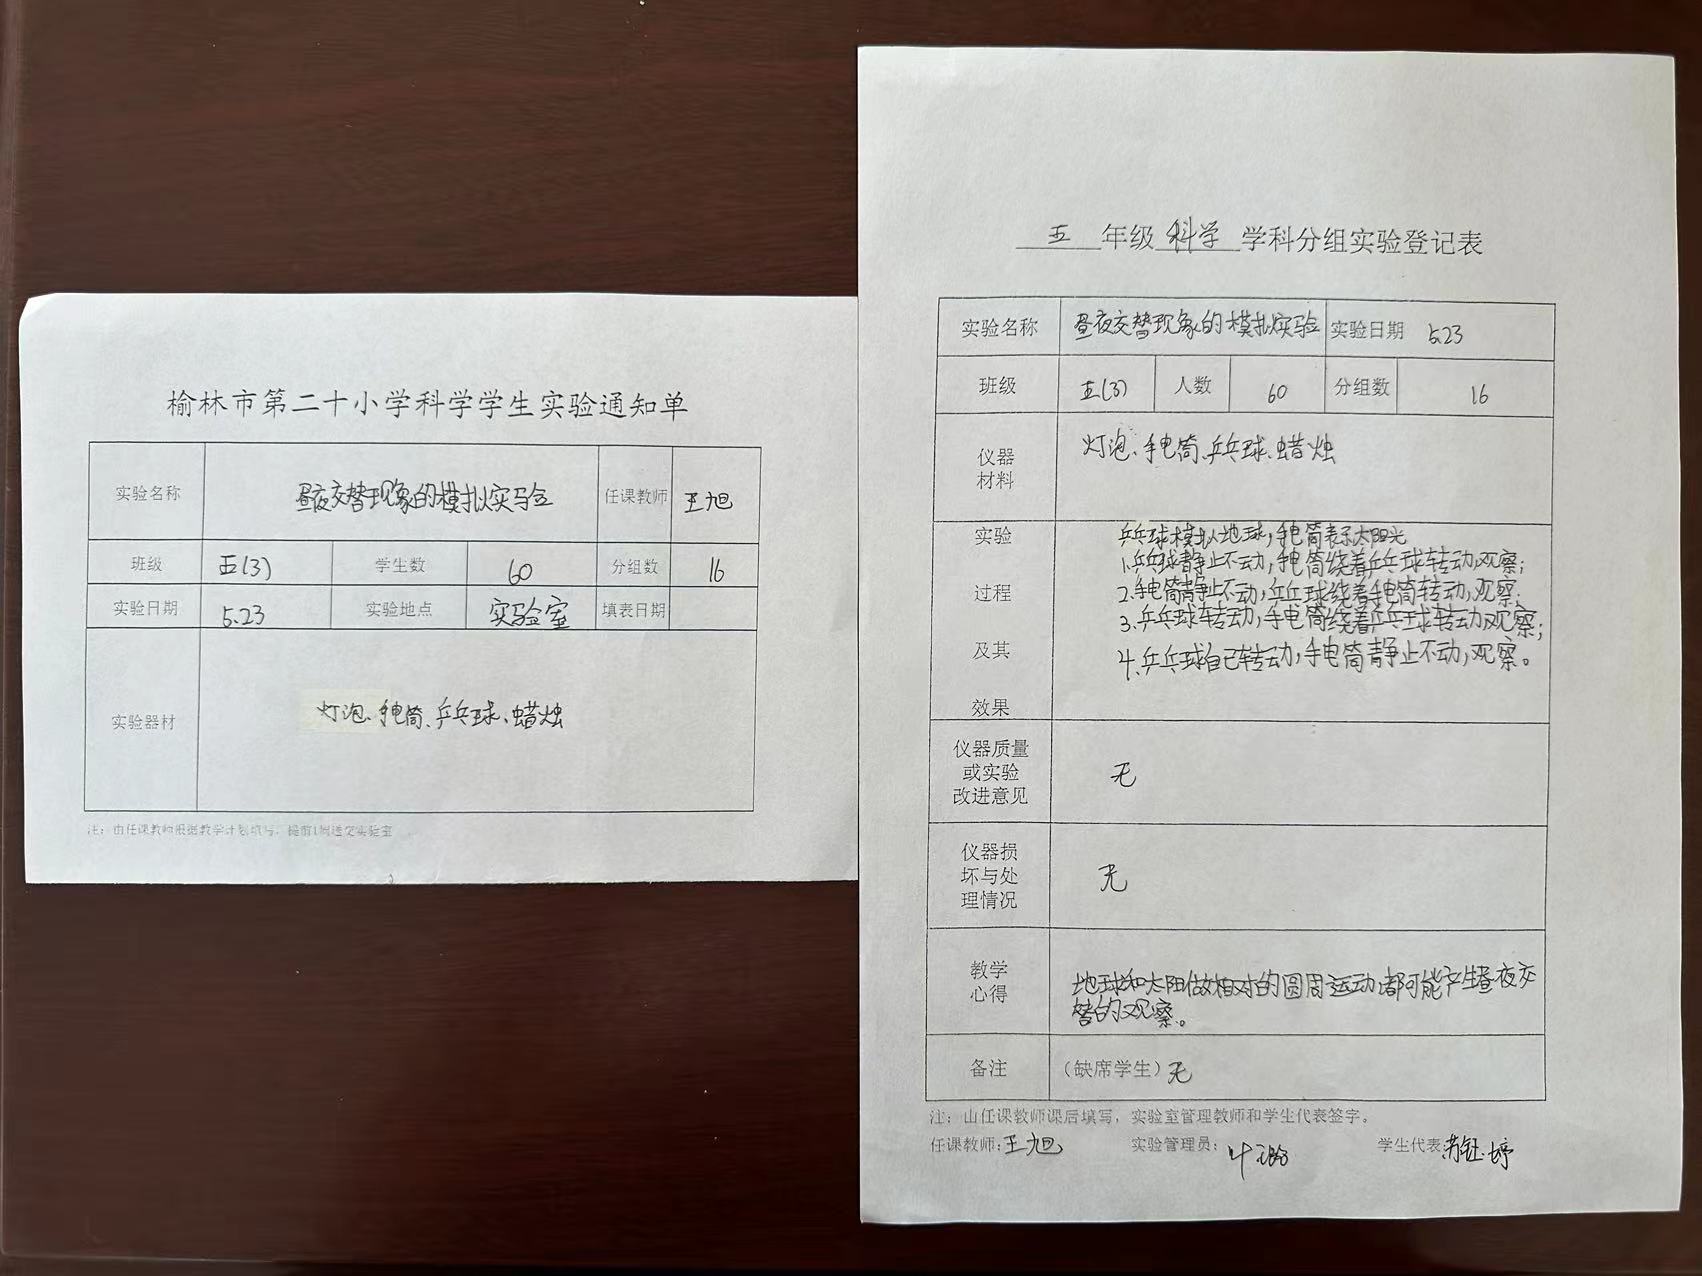 榆林市第二十小学科学学生实验通知单
实验名称 昼夜交替现象的模拟实验 任课教师 王旭
班级 五(3) 学生数 60 分组数 16
实验日期 5.23 实验地点 实验室 填表日期
实验器材 灯泡、手电筒、乒乓球、蜡烛
注：由任课教师根据教学计划填写，提前1周送交实验室
五 年级 科学 学科分组实验登记表
实验名称 昼夜交替现象的模拟实验 实验日期 5.23
班级 五(3) 人数 60 分组数 16
仪器
材料
灯泡、手电筒、乒乓球、蜡烛
实验
过程
及其
效果
乒乓球模拟地球，手电筒表示太阳光
1.乒乓球静止不动，手电筒绕着乒乓球转动，观察；
2.手电筒静止不动，乒乓球绕着手电筒转动，观察；
3.乒乓球转动，手电筒绕着乒乓球转动，观察；
4.乒乓球自己转动，手电筒静止不动，观察。
仪器质量
或实验
改进意见
无
仪器损
坏与处
理情况
无
教学
心得
地球和太阳做相对的圆周运动，都可能产生昼夜交
替的观察。
备注 （缺席学生）无
注：由任课教师课后填写，实验室管理教师和学生代表签字。
任课教师：王旭 实验管理员：叶璐 学生代表：苏钰婷